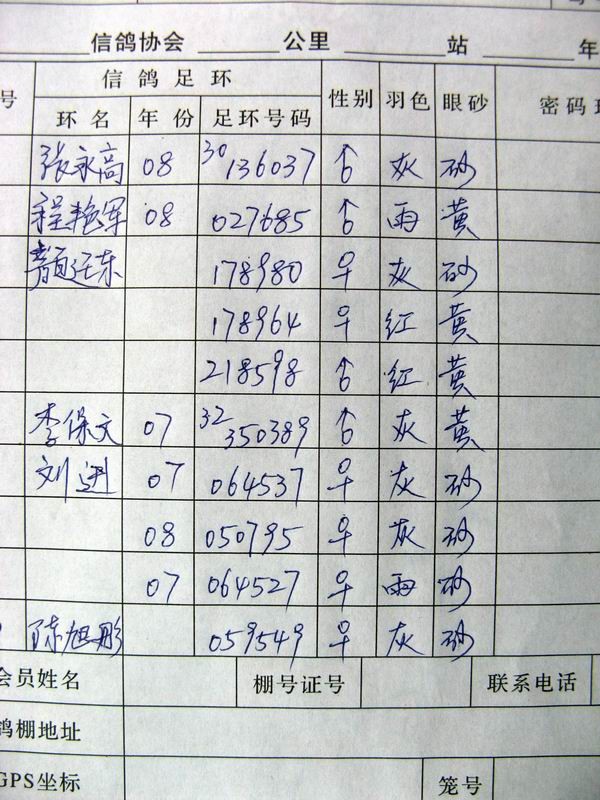 信鸽协会 公里 站 年
信鸽足环
号 环名 年份 足环号码 性别 羽色 眼砂 密码环
张永高 08 30 136037 ♂ 灰 砂
程艳军 08 027685 ♂ 雨 黄
颜廷东 178980 ♀ 灰 砂
178964 ♀ 红 黄
218598 ♂ 红 黄
李保文 07 32 350389 ♂ 灰 黄
刘进 07 064537 ♀ 灰 砂
08 050795 ♀ 灰 砂
07 064527 ♀ 雨 砂
陈旭彤 059549 ♀ 灰 砂
会员姓名 棚号证号 联系电话
鸽棚地址
GPS坐标 笼号